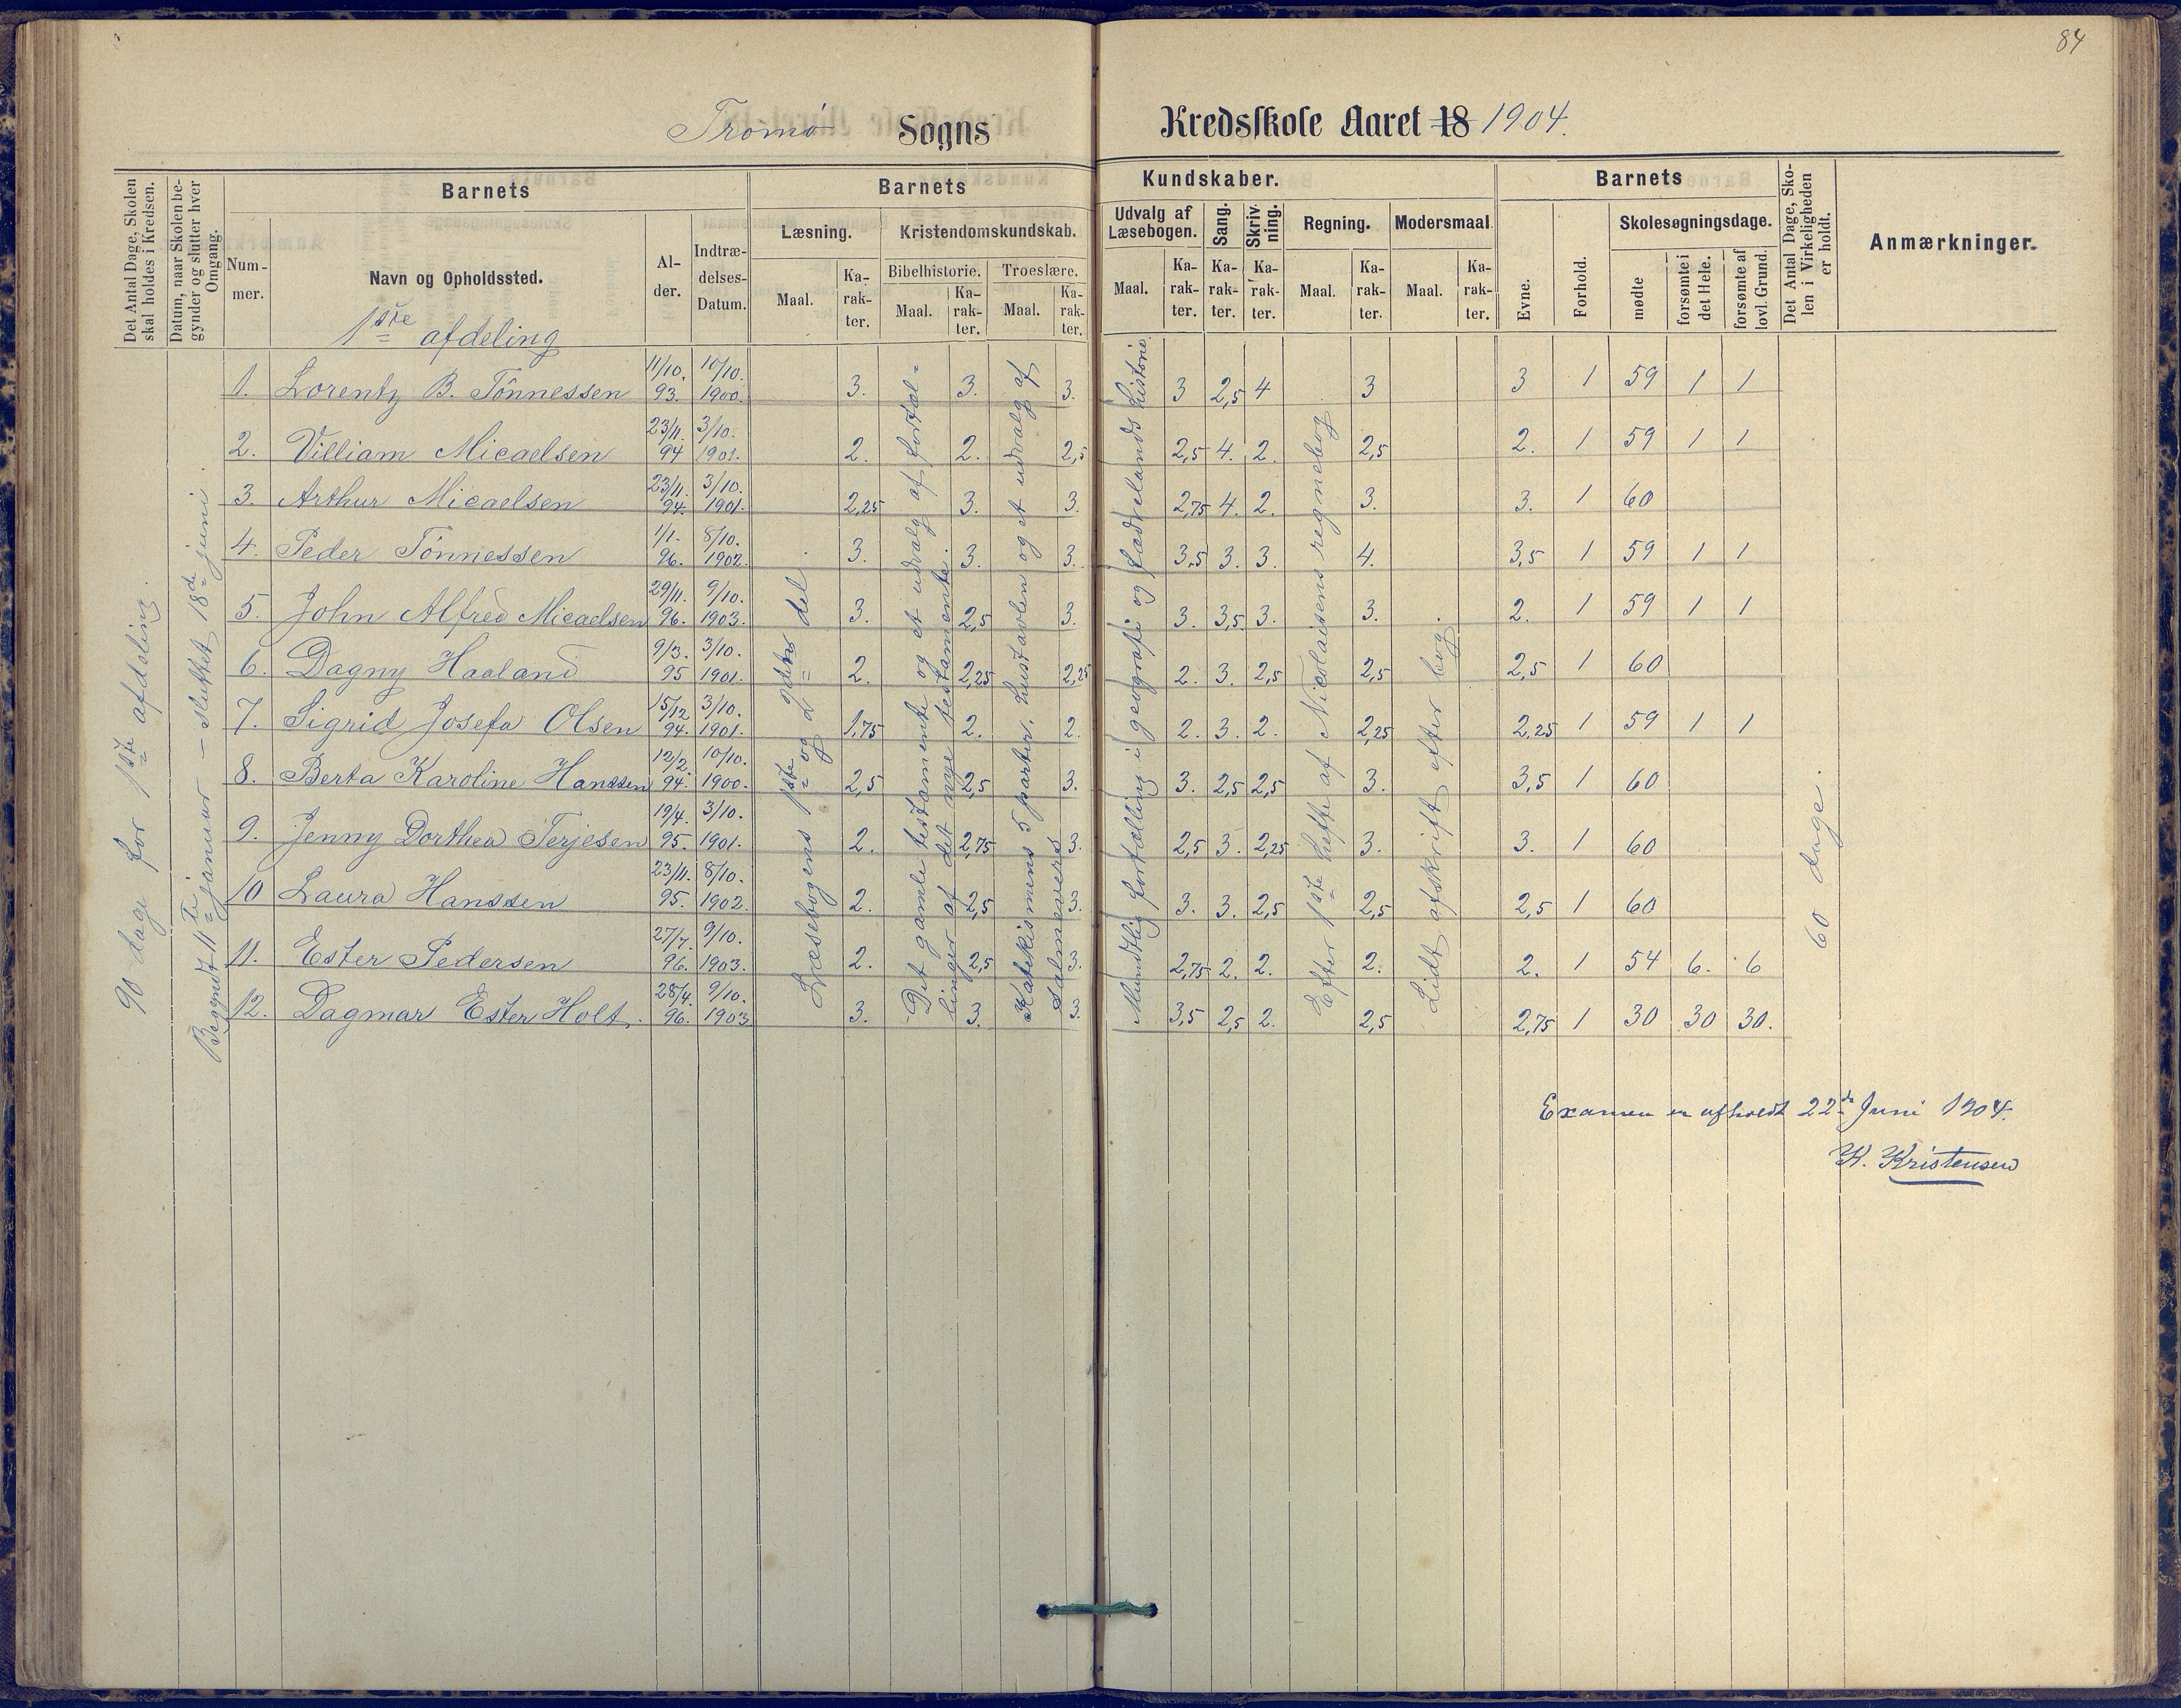 84
Tromø Sogns Kredsskole Aaret 18 1904.
Det Antal Dage, Skolen skal holdes i Kredsen.
Datum, naar Skolen begynder og slutter hver Omgang.
Barnets
Nummer.
Navn og Opholdssted.
Alder.
Indtrædelses-Datum.
Barnets Kundskaber.
Læsning.
Maal.
Karakter.
Kristendomskundskab.
Bibelhistorie.
Maal.
Karakter.
Troeslære.
Maal.
Karakter.
Udvalg af Læsebogen.
Maal.
Karakter.
Sang.
Karakter.
Skrivning.
Karakter.
Regning.
Maal.
Karakter.
Modersmaal.
Maal.
Karakter.
Barnets
Evne.
Forhold.
Skolesøgningsdage.
mødte
forsømte i det Hele.
forsømte af lovl. Grund.
Det Antal Dage, Skolen i Virkeligheden er holdt.
Anmærkninger.
1ste afdeling
90 dage for 1ste afdeling.
Begyndt 11te januar – sluttet 18de juni.
Læsebogens 1ste og 2den del.
Det gamle testamente og et udvalg af fortæl=
linger af det nye testamente.
Katekismens 5 parter, hustavlen og et udvalg af
salmevers
Mundtlig fortælling i geografi og fædrelandshistorie
Efter 1ste hefte af Nicolaisens regnebog
Lidt afskrift efter bog.
60 dage.
1. Lorentz B. Tönnessen 11/10. 93. 10/10. 1900. 3. 3. 3. 3 2,5 4 3 3 1 59 1 1
2. Villiam Micaelsen 23/11. 94 3/10. 1901. 2. 2. 2,5 2,5 4. 2. 2,5 2. 1 59 1 1
3. Arthur Micaelsen 23/11. 94. 3/10. 1901. 2,25 3. 3. 2,75 4. 2. 3. 3. 1 60
4. Peder Tönnessen 1/1. 96. 8/10. 1902. 3. 3. 3. 3,5 3. 3. 4. 3,5 1 59 1 1
5. John Alfred Micaelsen 29/11. 96. 9/10. 1903. 3. 2,5 3. 3. 3,5. 3. 3. 2. 1 59 1 1
6. Dagny Haaland 9/3. 95 3/10. 1901. 2. 2,25 2,25 2. 3. 2,5 2,5 2,5 1 60
7. Sigrid Josefa Olsen 15/12 94. 3/10. 1901. 1,75 2. 2. 2. 3. 2. 2,25 2,25 1 59 1 1
8. Berta Karoline Hanssen 12/2. 94. 10/10. 1900. 2,5 2,5 3. 3. 2,5 2,5 3. 3,5 1 60
9. Jenny Dorthea Terjesen 19/4. 95. 3/10. 1901. 2. 2,75 3. 2,5 3. 2,25 3. 3. 1 60
10 Laura Hanssen 23/11. 95. 8/10. 1902. 2. 2,5 3. 3. 3. 2,5 2,5 2,5 1 60
11. Ester Pedersen 27/7. 96. 9/10. 1903. 2. 2,5 3. 2,75 2. 2. 2. 2. 1 54 6. 6
12. Dagmar Ester Holt. 28/4. 96. 9/10. 1903 3. 3. 3. 3,5 2,5 2. 2,5 2,75 1 30 30 30.
Examen er afholdt 22de Juni 1904.
K. Kristensen